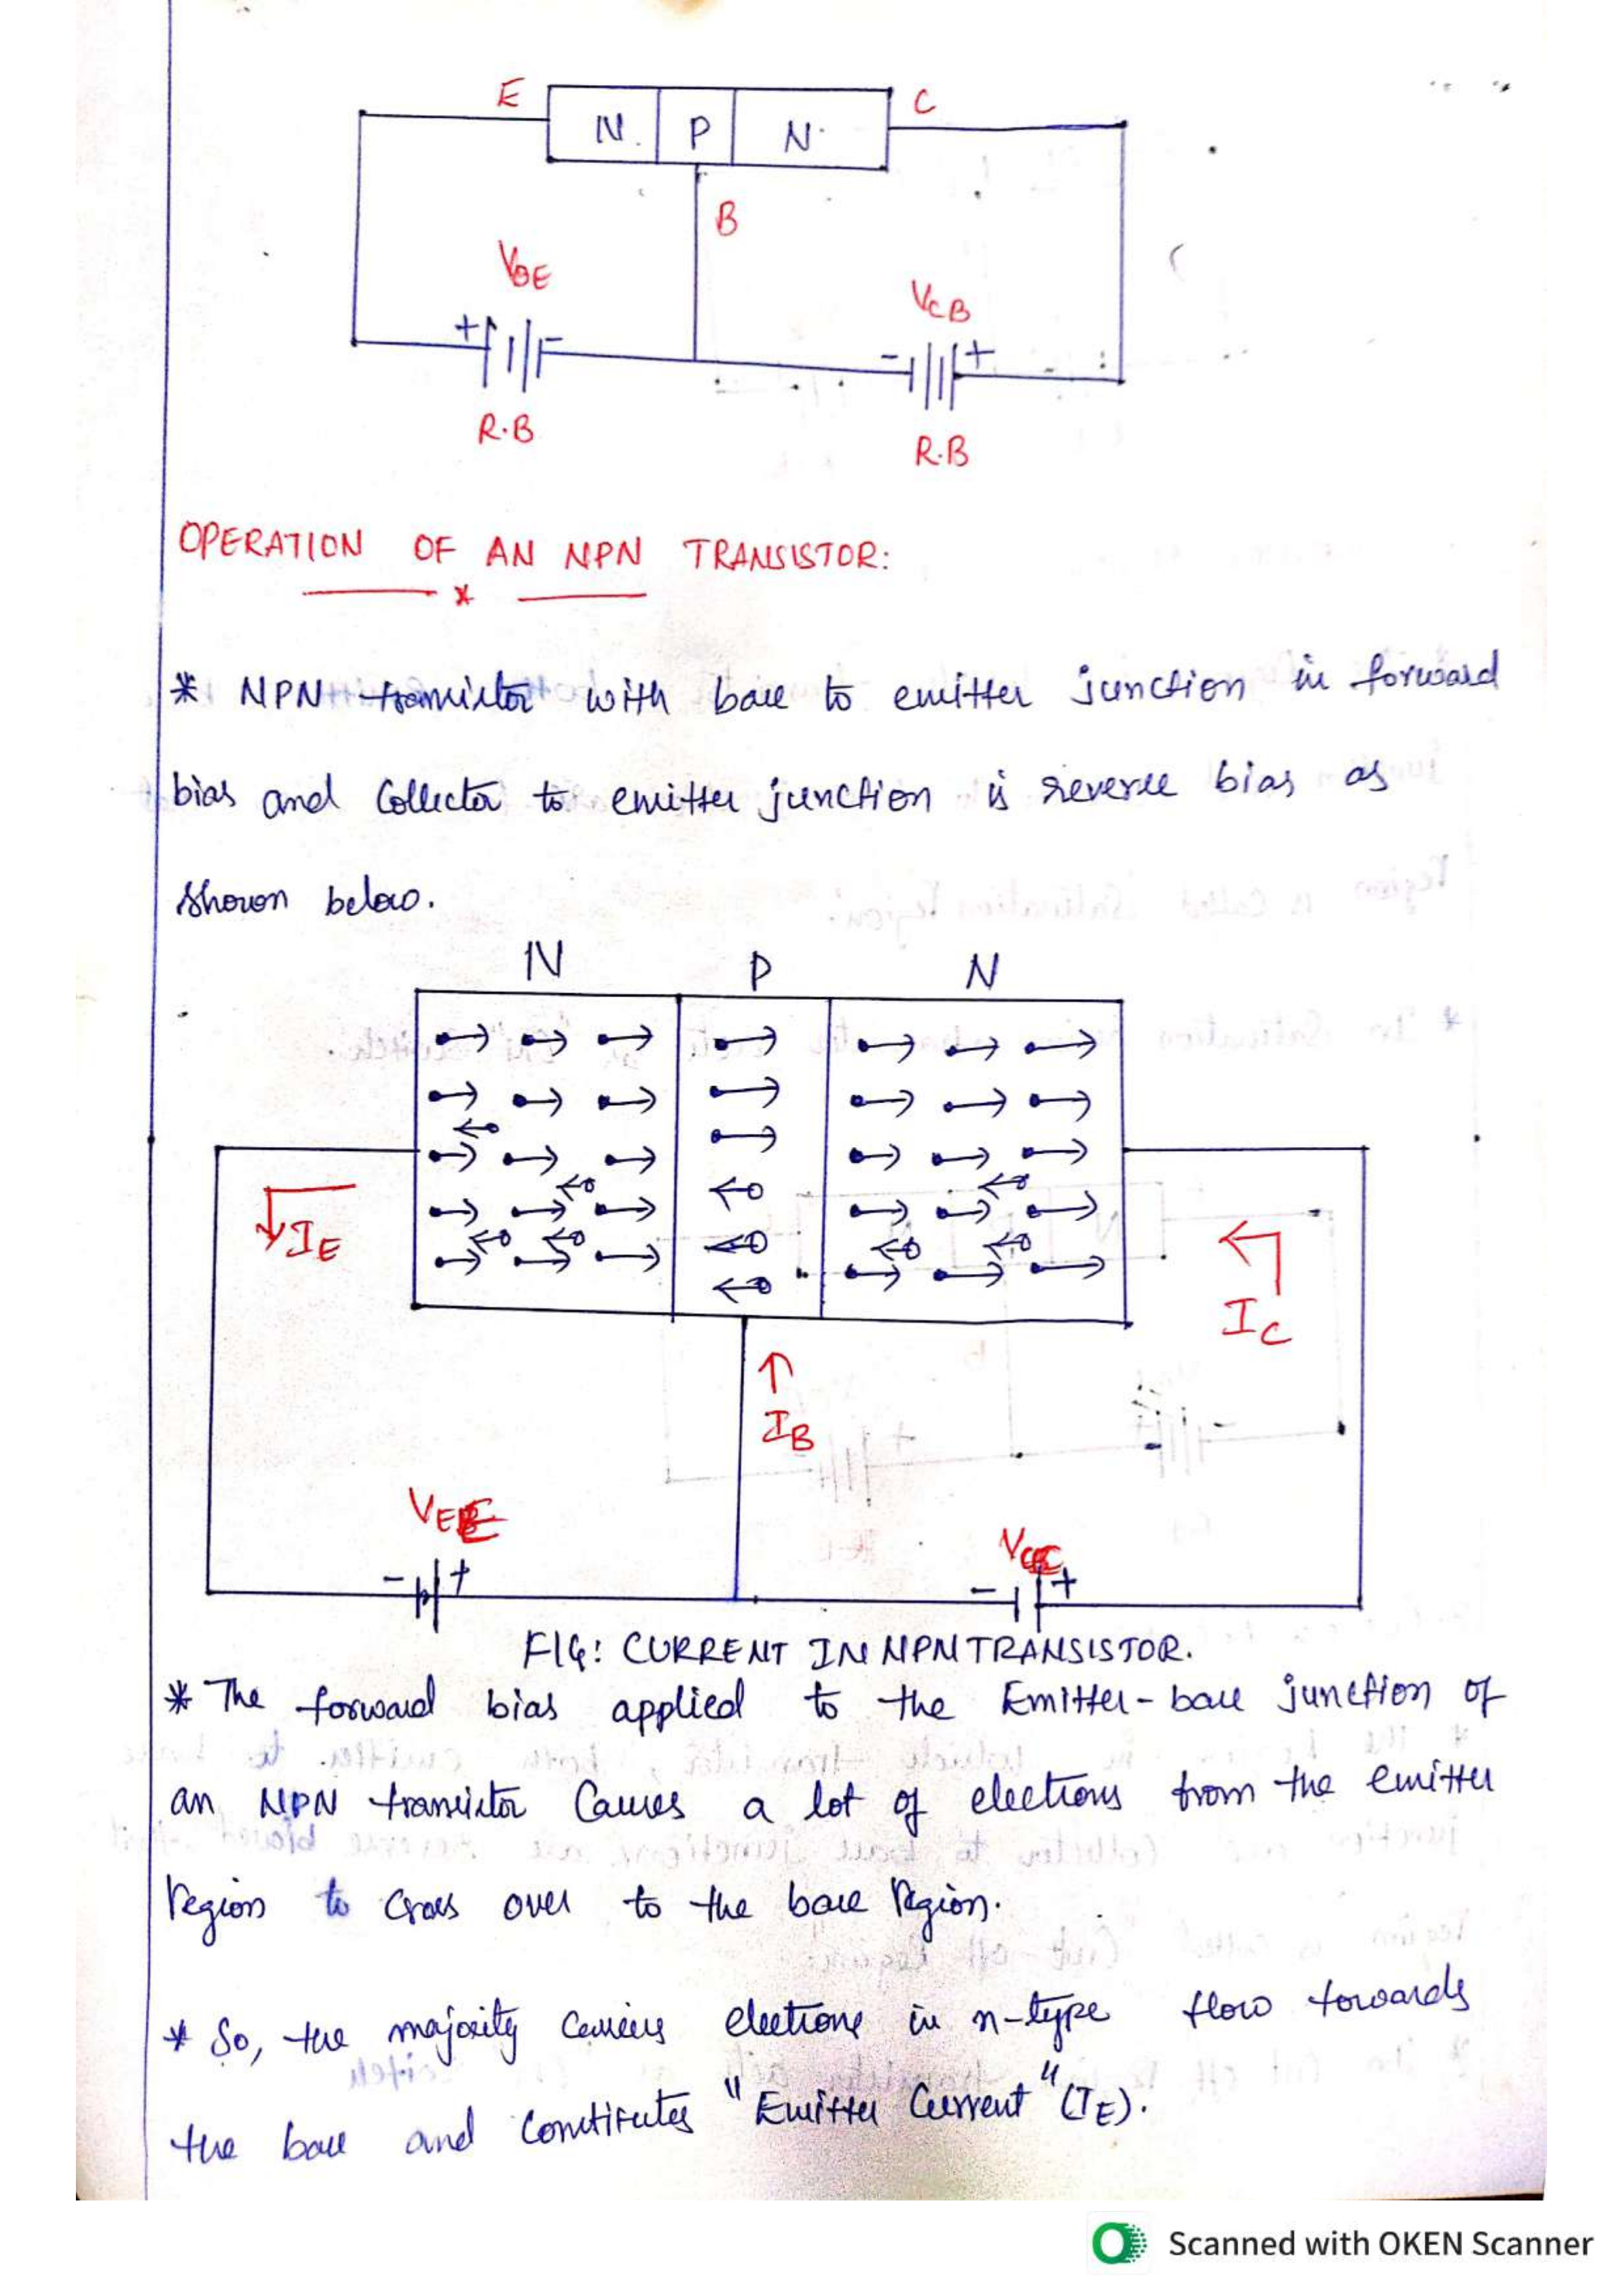 E
N
P
N
C
B
VBE
VCB
+
-
-
+
R.B
R.B
OPERATION OF AN NPN TRANSISTOR:
* NPN transistor with base to emitter junction in forward
bias and Collector to emitter junction is reverse bias as
shown below.
N P N
IE
IC
IB
- +
- +
FIG: CURRENT IN NPN TRANSISTOR.
* The forward bias applied to the Emitter-base junction of
an NPN transistor Causes a lot of electrons from the emitter
region to Cross over to the base Region.
* So, the majority carriers electrons in n-type flow towards
the base and Constitutes "Emitter Current" (IE).
Scanned with OKEN Scanner